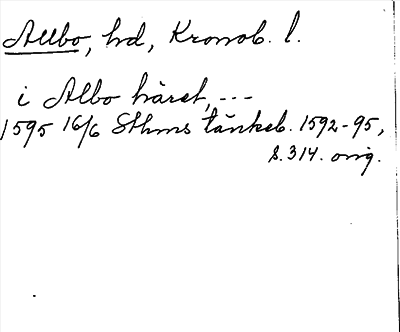 Allbo, hd, Kronob. l.
i Albo häret, ---
1595 16/6 Sthms tänkeb. 1592-95,
s. 314. orig.